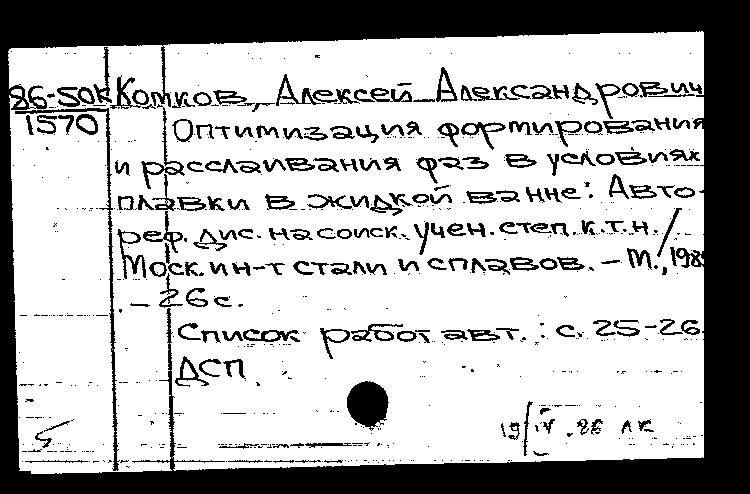 86-50к Комков, Алексей Александрович
1570 Оптимизация формирования
и расслаивания фаз в условиях
плавки в жидкой ванне: Авто-
реф. дис. на соиск. учен. степ. к.т.н. /
Моск. ин-т стали и сплавов. – М., 198
. – 26 с.
Список работ авт.: с. 25-26
ДСП
5 19/IV.86 ЛК